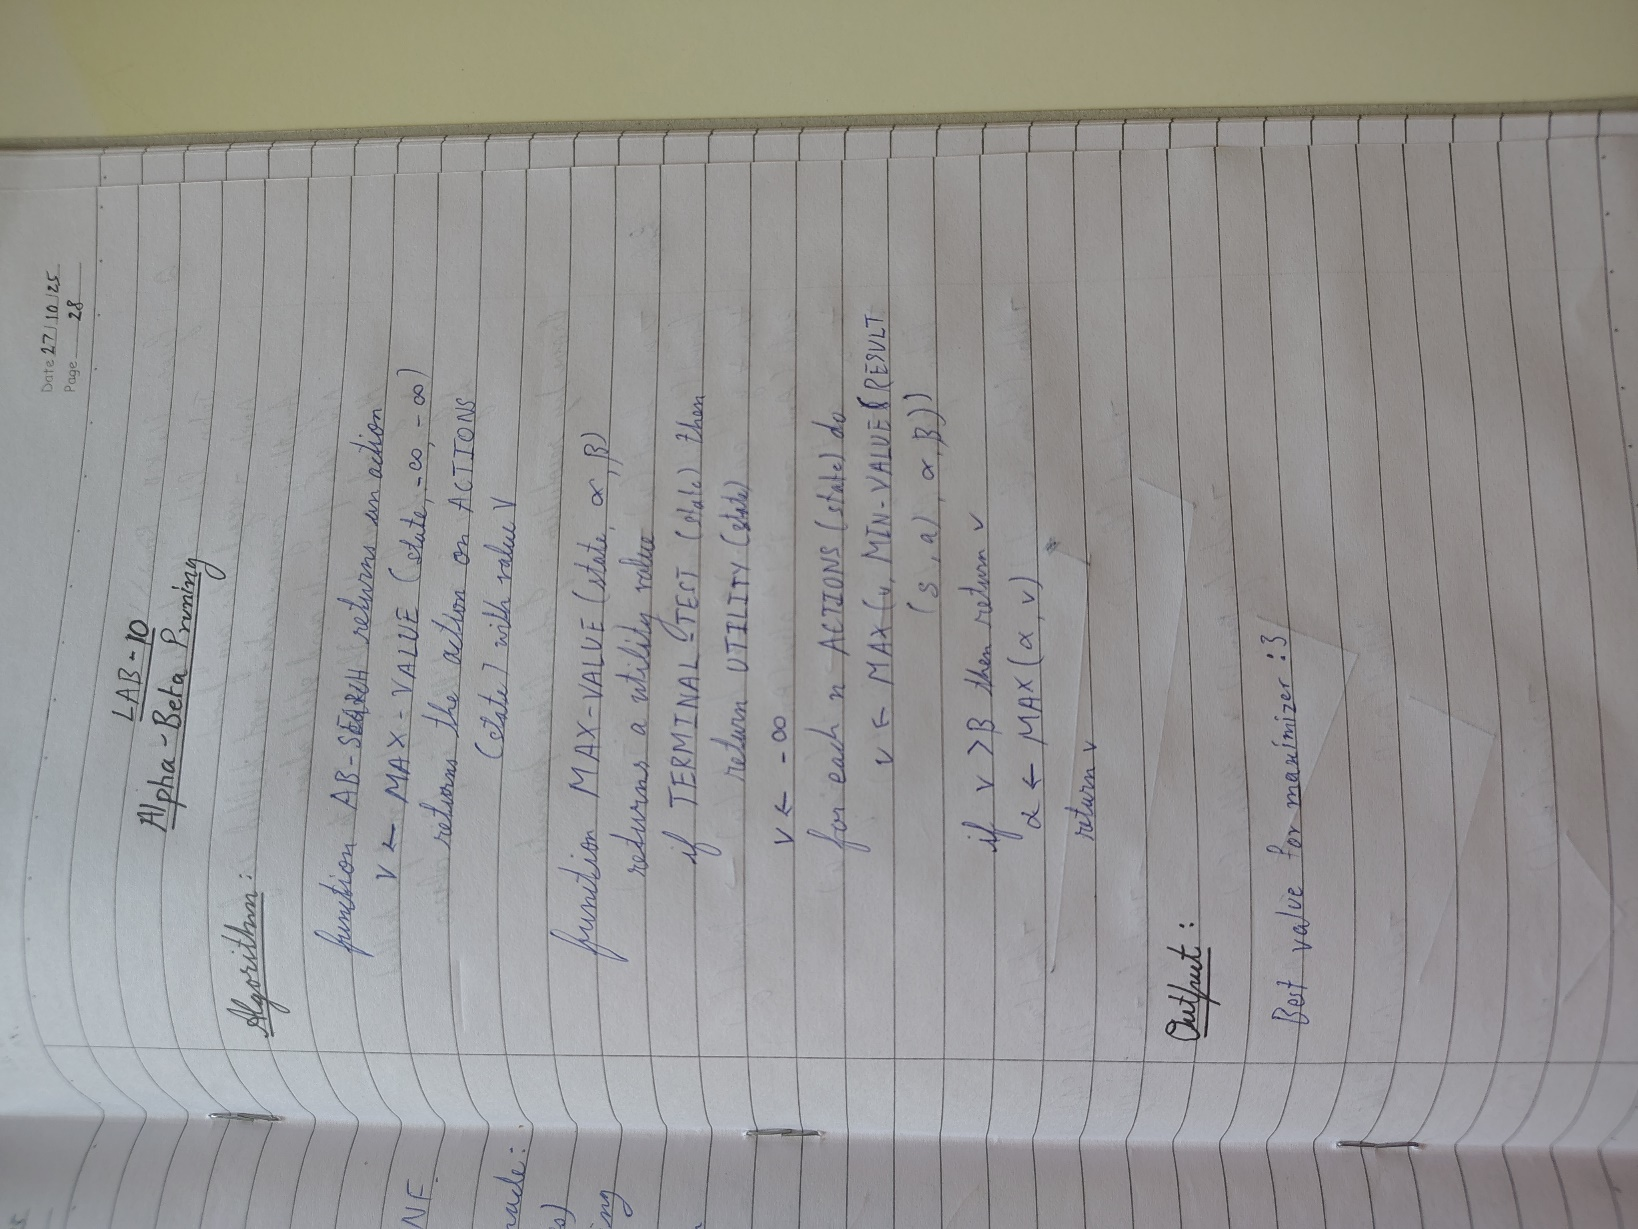 Date 27/10/25
Page 28
LAB-10
Alpha-Beta Pruning
Algorithm:
function AB-SEARCH returns an action
v ← MAX-VALUE (state, -∞, -∞)
returns the action on ACTIONS
(state) with value V
function MAX-VALUE (state, α, β)
returns a utility value
if TERMINAL-TEST (state) then
return UTILITY (state)
v ← -∞
for each n ACTIONS (state) do
v ← MAX (v, MIN-VALUE (RESULT
(s, a), α, β))
if v > β then return v
α ← MAX (α, v)
return v
Output:
Best value for maximizer : 3
NF